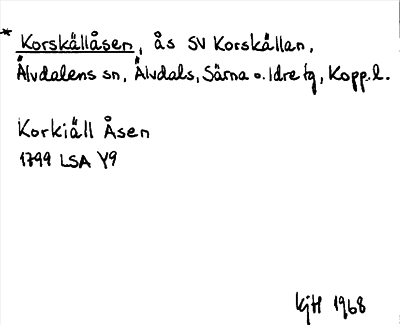 * Korskällåsen, ås SV Korskällan,
Älvdalens sn, Älvdals, Särna o. Idre tg, Kopp. l.
Korkiäll Åsen
1799 LSA Y9
KjH 1968